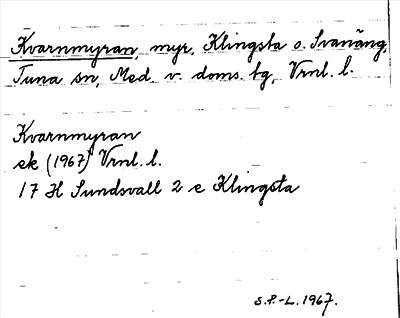 Kvarnmyran, myr, Klingsta o. Svanäng,
Tuna sn, Med. v. doms. tg, Vrnl. l.
Kvarnmyran
ek (1967) Vrnl. l.
17 H Sundsvall 2 e Klingsta
S.P.-L. 1967.